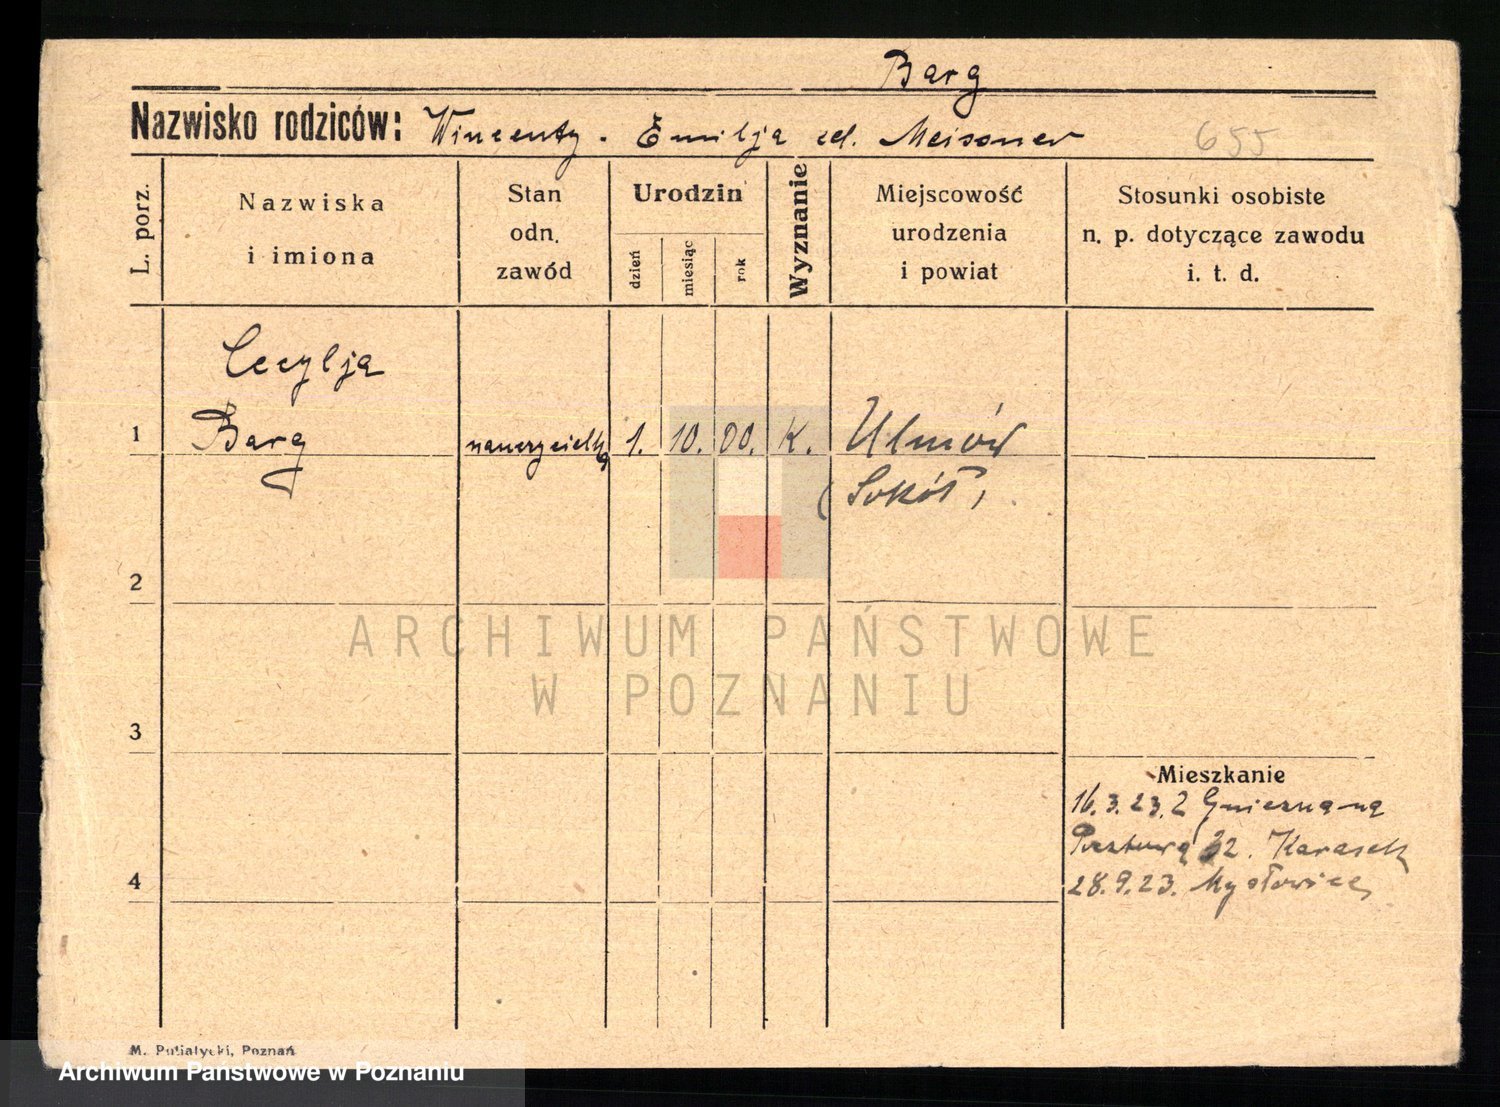 Barg
Nazwisko rodziców: Wincenty . Emilja zd. Meissner
655
L. porz.
Nazwiska
i imiona
Stan
odn.
zawód
Urodzin
dzień
miesiąc
rok
Wyznanie
Miejscowość
urodzenia
i powiat
Stosunki osobiste
n. p. dotyczące zawodu
i. t. d.
Cecylja
1 Barg nauczycielka 1. 10. 00. K. Ulmów
(Sokół)
2
ARCHIWUM PAŃSTWOWE
W POZNANIU
3
Mieszkanie
16.3.23. Z Gniezna na
Pocztową 32. Karasek
4
28.9.23. Mysłowice
M. Putiatycki, Poznań
Archiwum Państwowe w Poznaniu